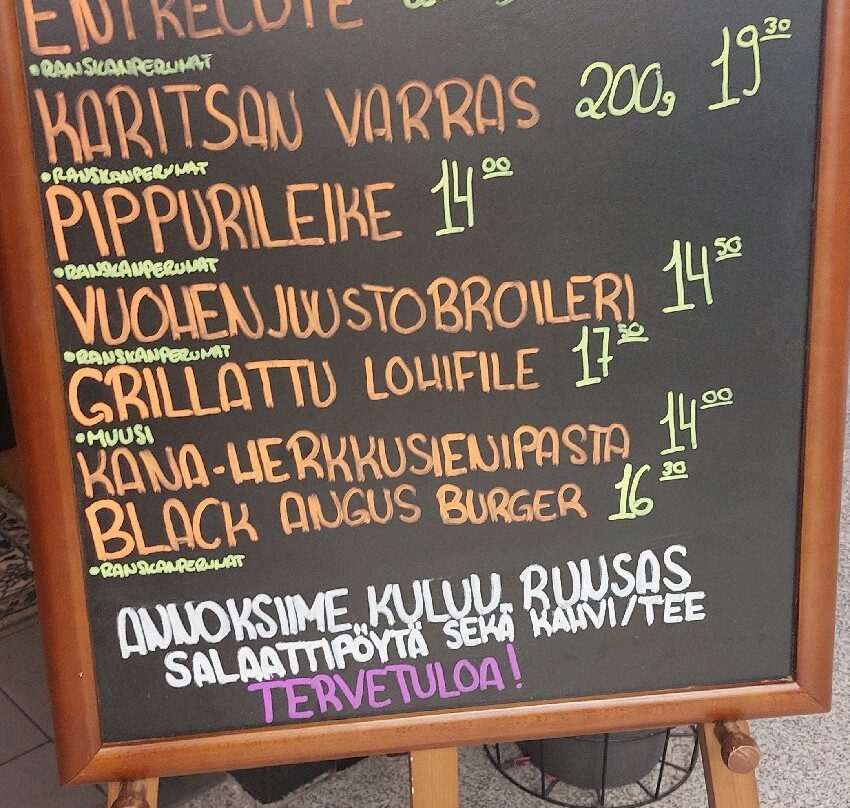 ENTRECOTE
•RANSKANPERUNAT
KARITSAN VARRAS 200g 19 30
•RANSKANPERUNAT
PIPPURILEIKE 14 00
•RANSKANPERUNAT
VUOHENJUUSTOBROILERI 14 50
•RANSKANPERUNAT
GRILLATTU LOHIFILE 17 50
•MUUSI
KANA-HERKKUSIENIPASTA 14 00
BLACK ANGUS BURGER 16 30
•RANSKANPERUNAT
ANNOKSIIMME KULUU RUNSAS
SALAATTIPÖYTÄ SEKÄ KAHVI/TEE
TERVETULOA!